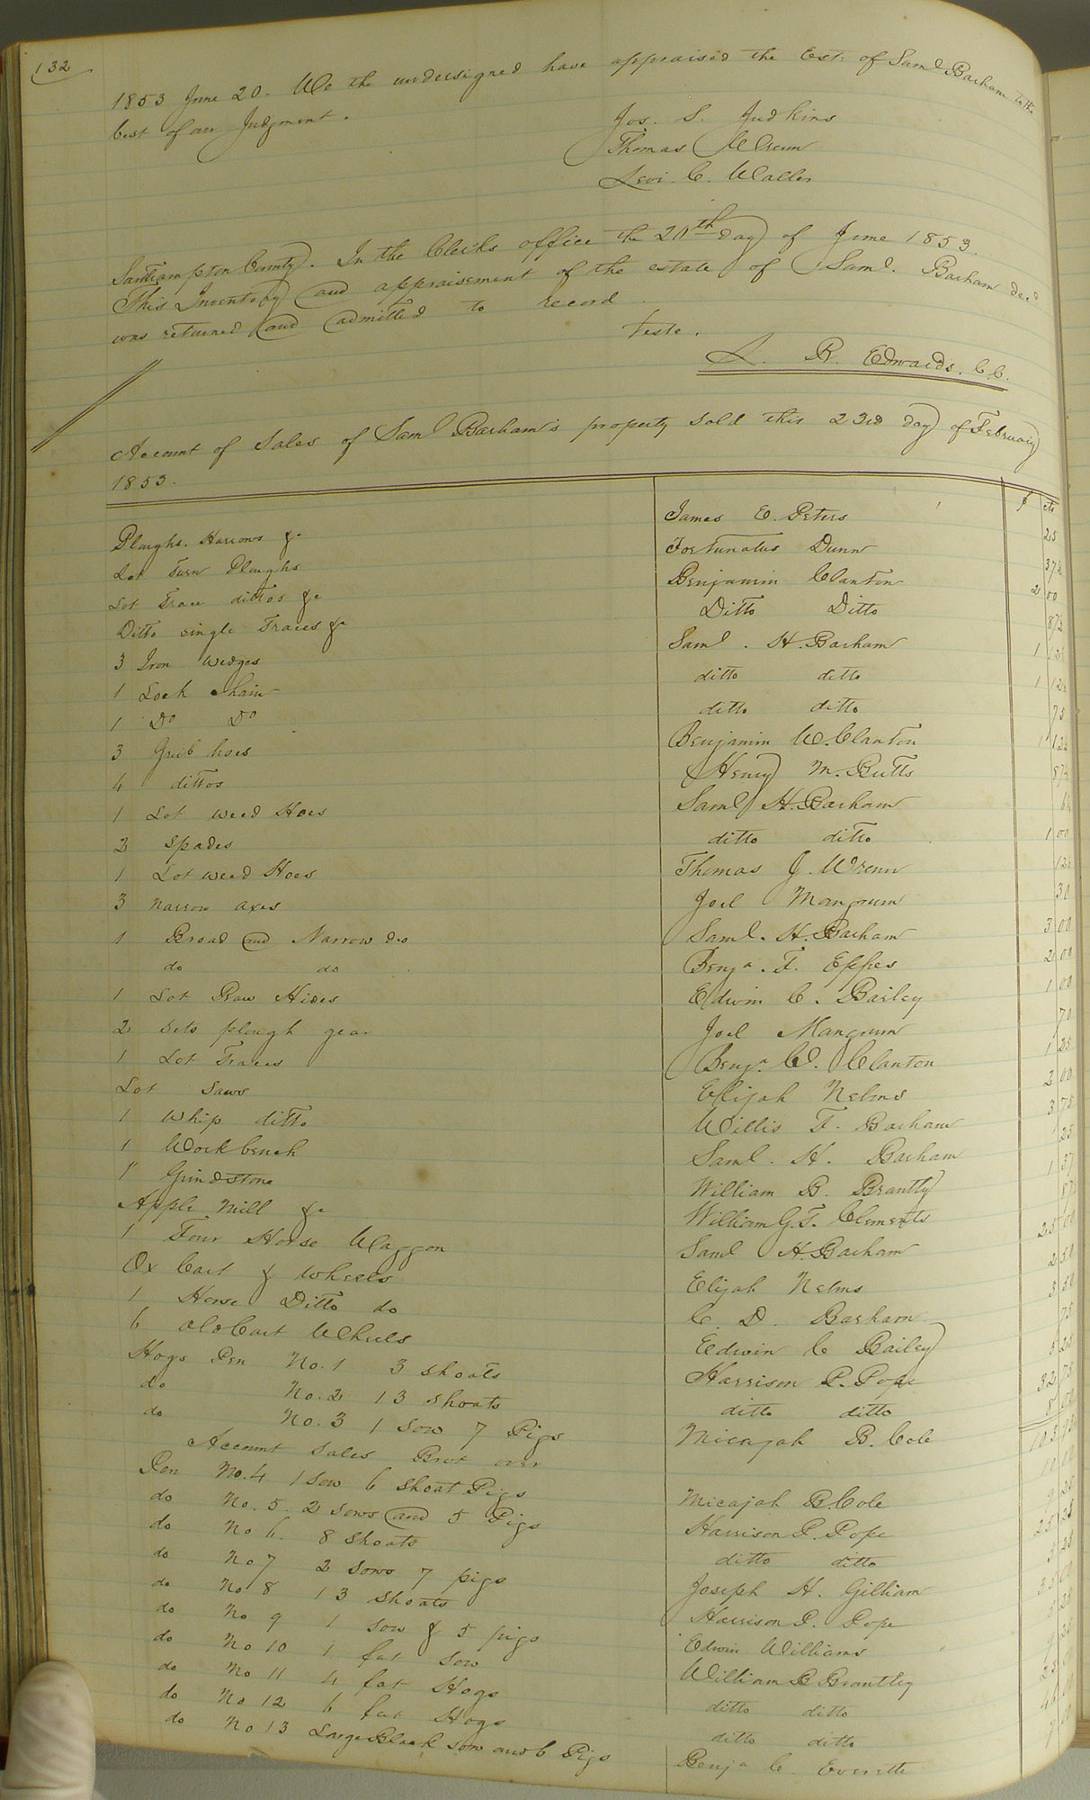 132
1853 June 20. We the undersigned have appraised the Est. of Saml Barham to the
best of our Judgment.
Jos. S. Judkins
Thomas Wrenn
Levi C. Waller
Southampton County. In the Clerks office the 20th day of June 1853.
This Inventory and appraisement of the estate of Saml. Barham decd
was returned and admitted to record
Teste.
L. R. Edwards. C.C.
Account of Sales of Saml Barham's property sold this 23rd day of February
1853.
$ cts
Ploughs. Harrows &c James E. Peters 25
Lot Turn Ploughs Fortunatus Dunn 37½
Lot Trace dittos &c Benjamin Clanton 2 00
Ditto single Traces &c Ditto Ditto 87½
3 Iron Wedges Saml. H. Barham 1
1 Lock Chain ditto ditto 1 12½
1 Do Do ditto ditto 75
3 Grub hoes Benjamin W. Clanton 1 12½
4 dittos Henry M. Butts 87½
1 Lot weed Hoes Saml H. Barham
3 Spades ditto ditto 1 00
1 Lot weed Hoes Thomas J. Wrenn 12½
3 Narrow axes Joel Mangrum 30
1 Broad and Narrow do Saml. H. Barham 3 00
do do Benja. F. Eppes 2 00
1 Lot Raw Hides Edwin C. Bailey 1 00
2 Sets plough gear Joel Mangrum 70
1 Lot Traces Benja. W. Clanton 1 25
Lot Saws Elijah Nelms 2 00
1 Whip ditto Willis F. Barham 3 75
1 Workbench Saml. H. Barham 25
1" Grindstone William B. Brantly 1 37
Apple Mill &c William G. F. Clements
1 Four Horse Waggon Saml H. Barham 25 00
Ox Cart & Wheels Elijah Nelms 2 50
1 Horse Ditto do C. D. Barham 3 50
6 old Cart Wheels Edwin C Bailey 75
Hogs Pen No. 1 3 shoats Harrison P. Pope
do No. 2 13 shoats ditto ditto 32
do No. 3 1 Sow 7 Pigs Micajah B. Cole
Account Sales Brot over
Pen No. 4 1 Sow 6 Shoat Pigs Micajah B. Cole
do No. 5. 2 Sows and 5 Pigs Harrison P. Pope
do No 6. 8 Shoats ditto ditto
do No 7 2 Sows 7 pigs Joseph H. Gilliam
do No 8 13 shoats Harrison P. Pope
do No 9 1 sow & 5 pigs Edwin Williams
do No 10 1 fat Sow William B Brantley
do No 11 4 fat Hogs ditto ditto
do No 12 6 fat Hogs ditto ditto
do No 13 Large Black Sow and 6 Pigs Benja C. Everette